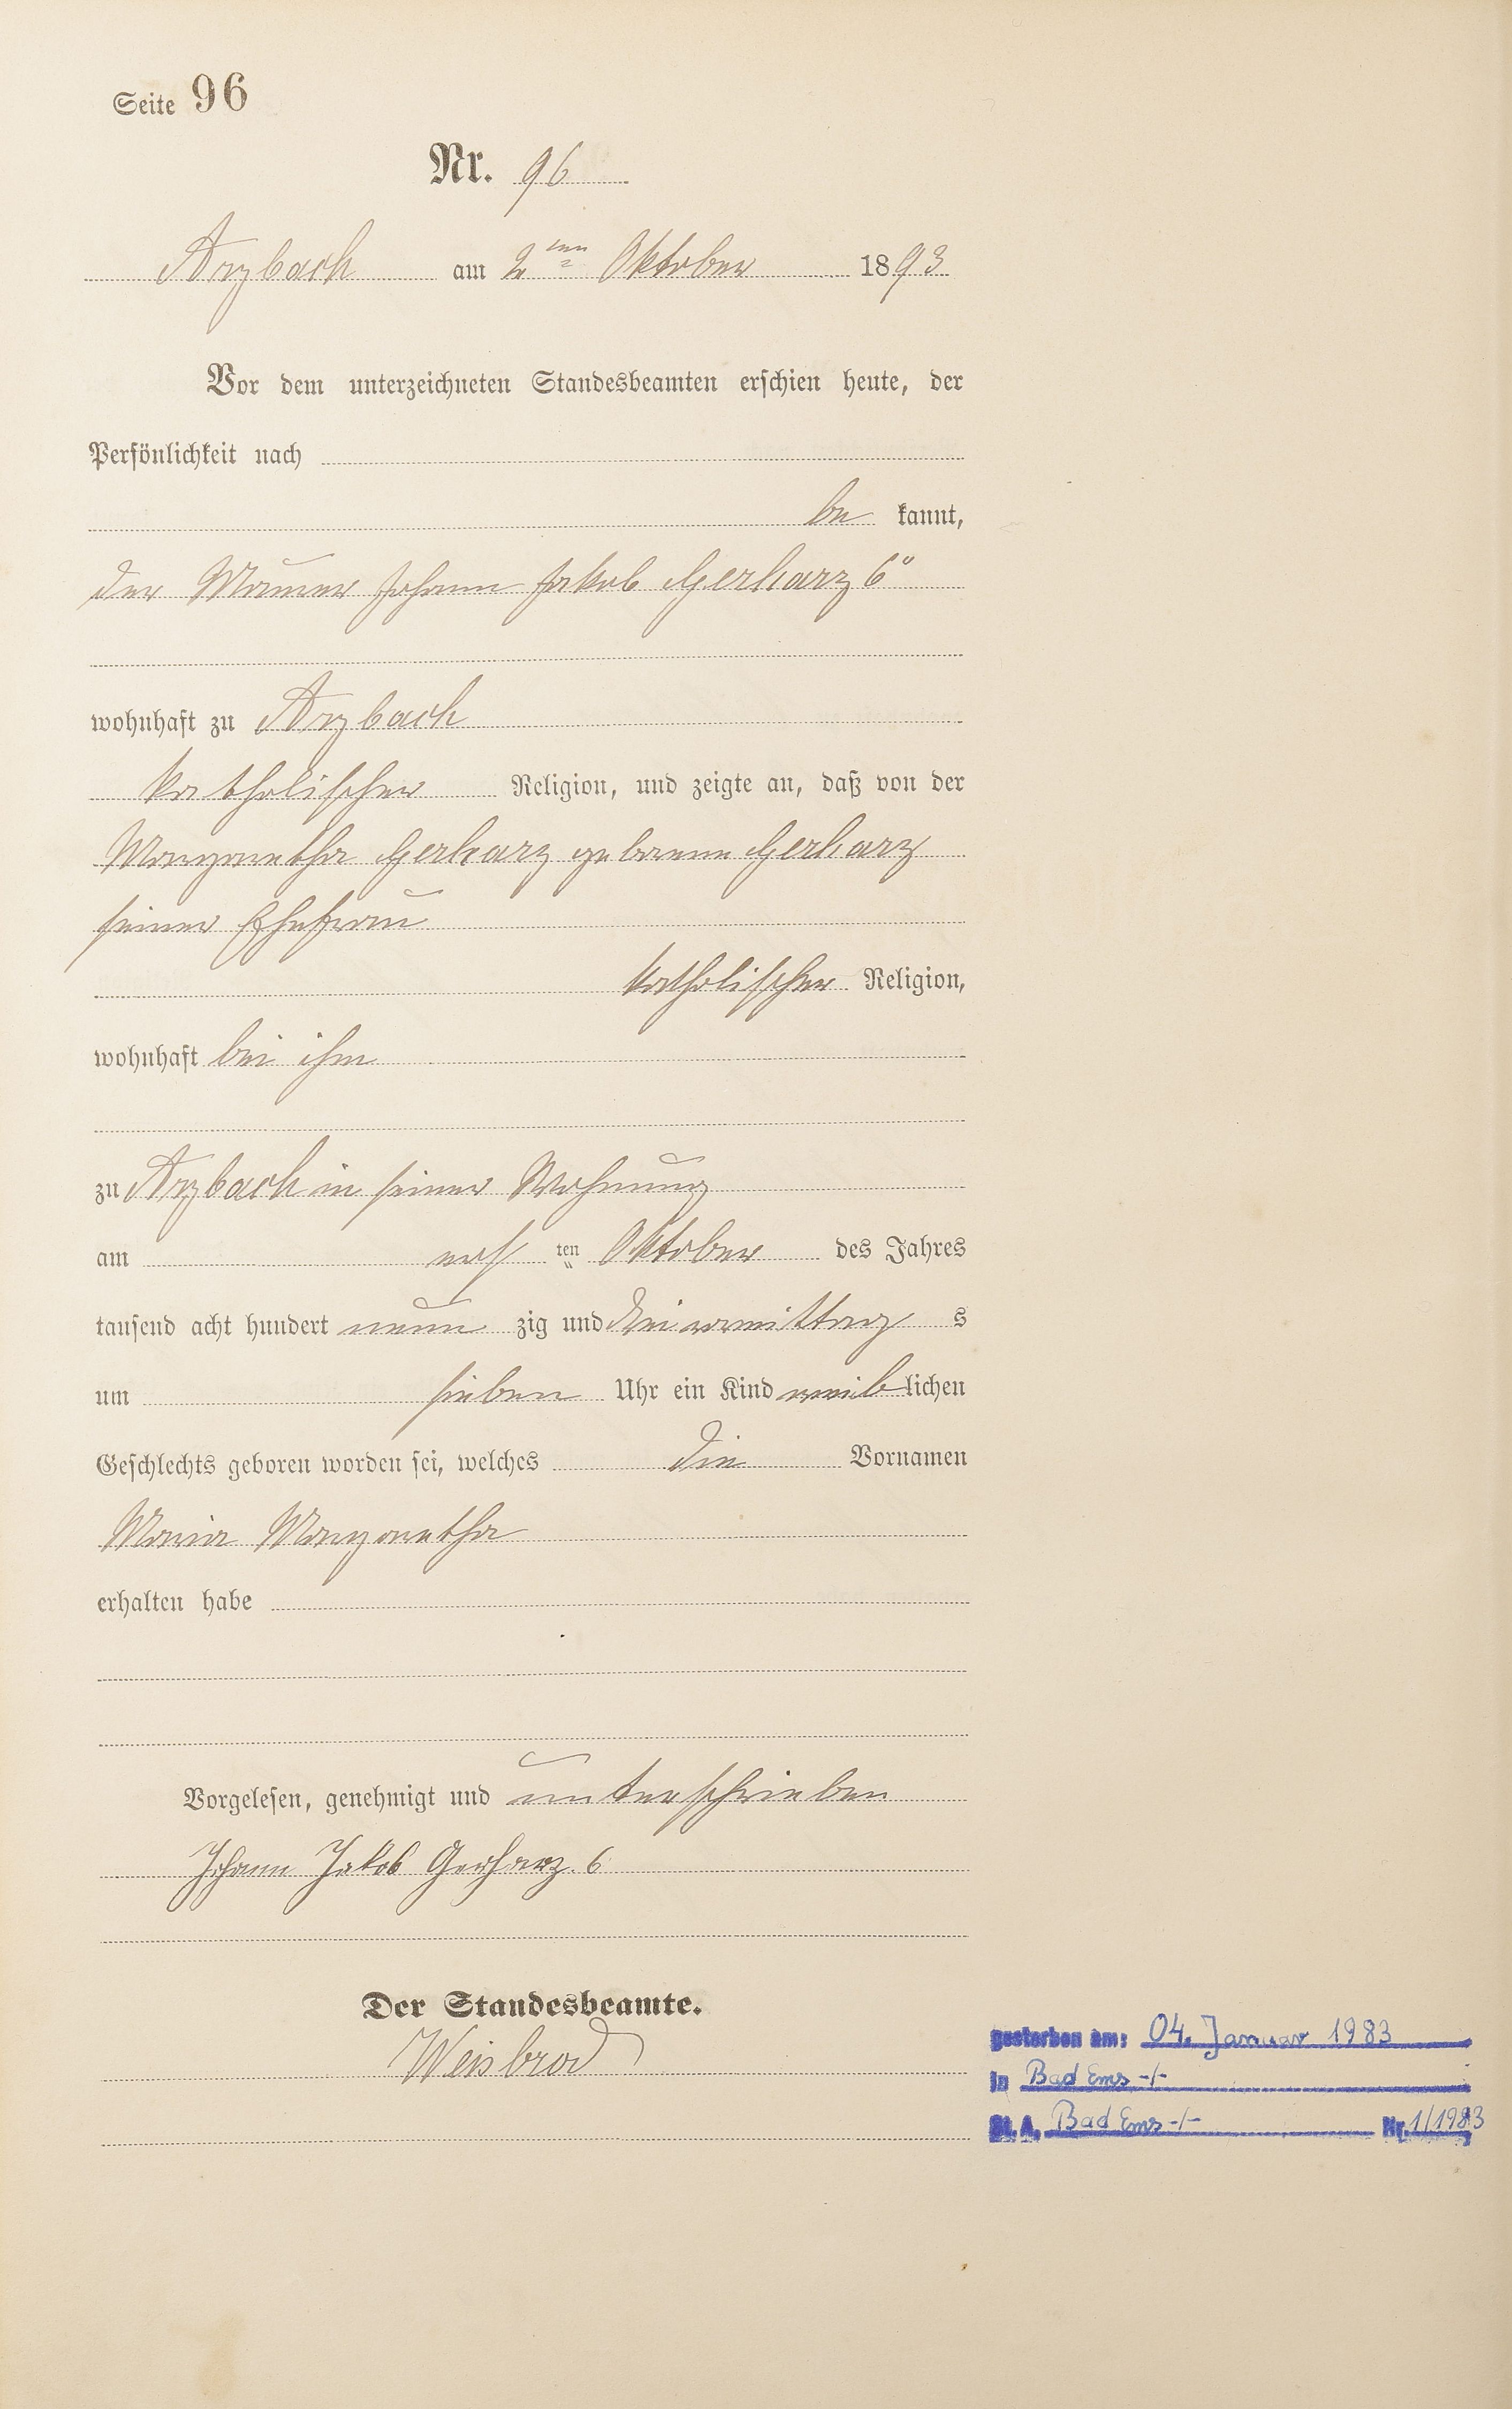 Seite 96
Nr. 96
Arzbach am 2ten Oktober 1893
Vor dem unterzeichneten Standesbeamten erschien heute, der
Persönlichkeit nach
be kannt,
der Maurer Johann Jakob Gerharz 6r
wohnhaft zu Arzbach
katholischer Religion, und zeigte an, daß von der
Margaretha Gerharz geborene Gerharz
seiner Ehefrau
katholischer Religion,
wohnhaft bei ihm
zu Arzbach in seiner Wohnung
am ers ten Oktober des Jahres
tausend acht hundert neun zig und drei vormittag s
um sieben Uhr ein Kind weiblichen
Geschlechts geboren worden sei, welches die Vornamen
Maria Margaretha
erhalten habe
Vorgelesen, genehmigt und unterschrieben
Johann Jakob Gerharz 6
Der Standesbeamte.
Weisbrod
gestorben am: 04. Januar 1983
in Bad Ems -/-
St. A. Bad Ems -/- Nr. 1/1983